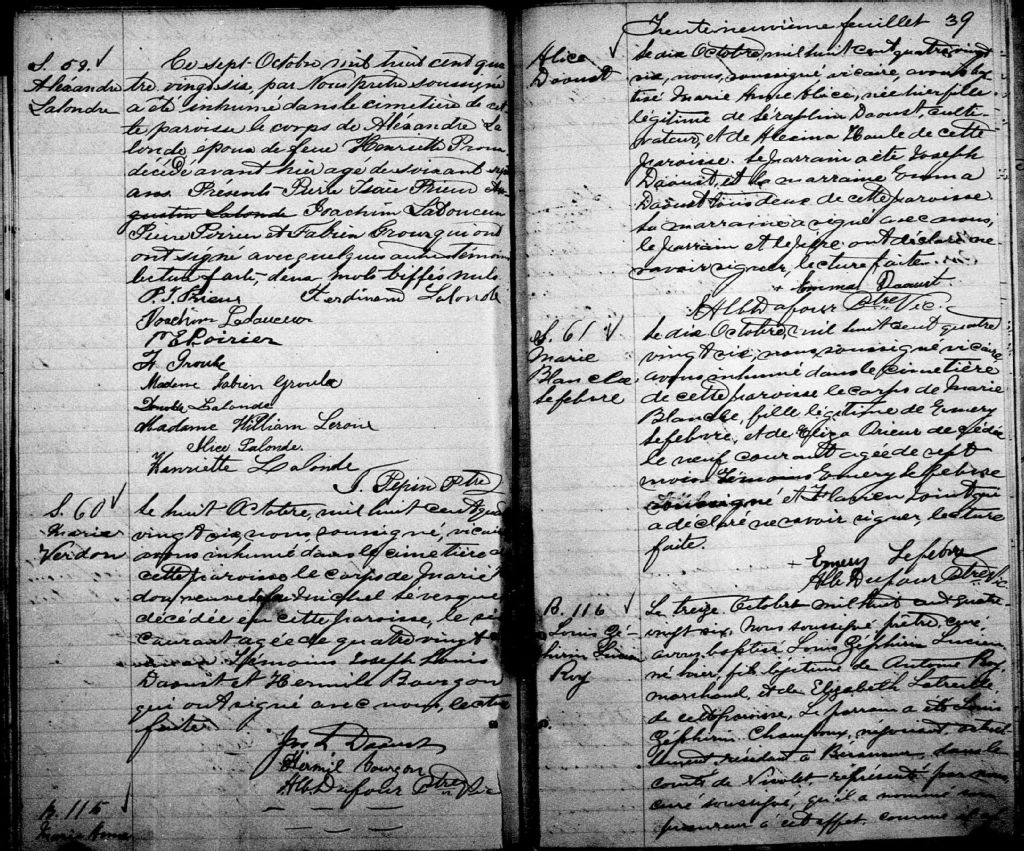 S. 59.
Aléxandre
Lalondre
Ce sept Octobre mil huit cent qua
tre vingt six, par Nous prêtre soussigné
a été inhumé dans le cimetière de cet
te paroisse le corps de Aléxandre La
londe epoux de feue Henriette
décédé avant hier agé de soixante sept
ans. Présents Pierre Isaie Prieur Au
gustin Lalonde Joachim Ladouceur
Pierre Poirier et Fabien Groux qui ont
ont signé avec quelques autres témoins
lecture faite, deux mots biffés nuls.
P. I. Prieur Ferdinand Lalonde
Joachim Ladouceur
P E Poirier
F. Groulx
Madame Fabien Groulx
Lalonde
Madame William Leroux
Alice Lalonde
Henriette Lalonde
T. Pepin Ptre
S. 60
Marie
Verdon
Le huit Octobre, mil huit cent qua
vingt six, nous, soussigné, vicaire
avons inhumé dans le cimetière de
cette paroisse le corps de Marie
don, veuve de feu Michel
décédée en cette paroisse, le six
courant agée de quatre vingt
ans. Témoins Joseph Louis
Daoust et Hermile Bourgon
qui ont signé avec nous, lecture
faite
Jos L Daoust
Hermil Bourgon
Alb Dufour Ptre Vic
B. 115
Marie Anne
Trente neuvième feuillet 39
Alice
Daoust
le dix Octobre, mil huit cent quatre vingt
six, nous, soussigné vicaire, avons bap
tisé Marie Anne Alice, née hier fille
légitime de Séraphin Daoust, culti
vateur, et de Alexina de cette
paroisse. Le parrain a été Joseph
Daoust, et la marraine Emma
Daoust tous deux de cette paroisse
La marraine a signé avec nous,
le parrain et le père ont déclaré ne
savoir signer, lecture faite.
+ Emma Daoust
Alb Dufour Ptre Vic.
S. 61
Marie
Blanche
Lefebvre
Le dix Octobre, mil huit cent quatre
vingt six, nous, soussigné vicaire,
avons inhumé dans le cimetière
de cette paroisse le corps de Marie
Blanche, fille légitime de Emery
Lefebvre, et de Eliza Prieur décédée
le neuf courant agée de sept
mois. Témoins Emery Lefebvre
soussigné et Flavien qui
a déclaré ne savoir signer, lecture
faite.
+ Emery Lefebvre
Alb. Dufour Ptre Vic
B. 116
Louis Zé-
phirin Lucien
Roy
Le treize Octobre mil huit cent quatre-
vingt six, Nous soussigné prêtre, curé
avons baptisé Louis Zéphirin Lucien
né hier, fils légitime de Antoine Roy,
marchand, et de Elizabeth Latreille,
de cette paroisse. Le parrain a été Louis
Zéphirin Champoux, négociant, actuel-
lement résident à dans le
comté de Nicolet représenté par nous
curé soussigné, qu'il a nommé son
procureur à cet effet, comme il